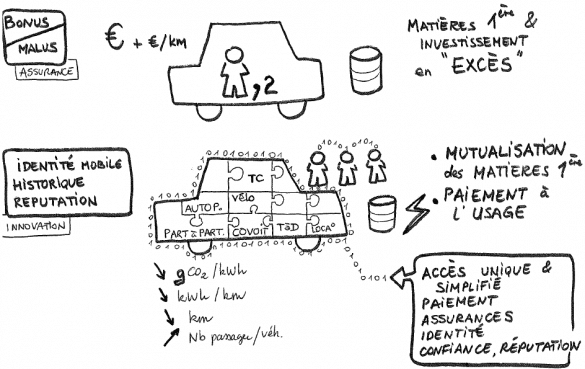 BONUS
MALUS
ASSURANCE
€ + €/km
,2
MATIÈRES 1ère &
INVESTISSEMENT
en "EXCÈS"
IDENTITÉ MOBILE
HISTORIQUE
REPUTATION
INNOVATION
TC
VÉLO
AUTOP.
PART à PART.
COVOIT
TàD
LOCA°
• MUTUALISATION
des MATIÈRES 1ère
• PAIEMENT à
L'USAGE
↘ gCO2/kWh
↘ kWh/km
↘ km
↗ Nb passager/véh.
0101
ACCÈS UNIQUE &
SIMPLIFIÉ
PAIEMENT
ASSURANCES
IDENTITÉ
CONFIANCE, RÉPUTATION